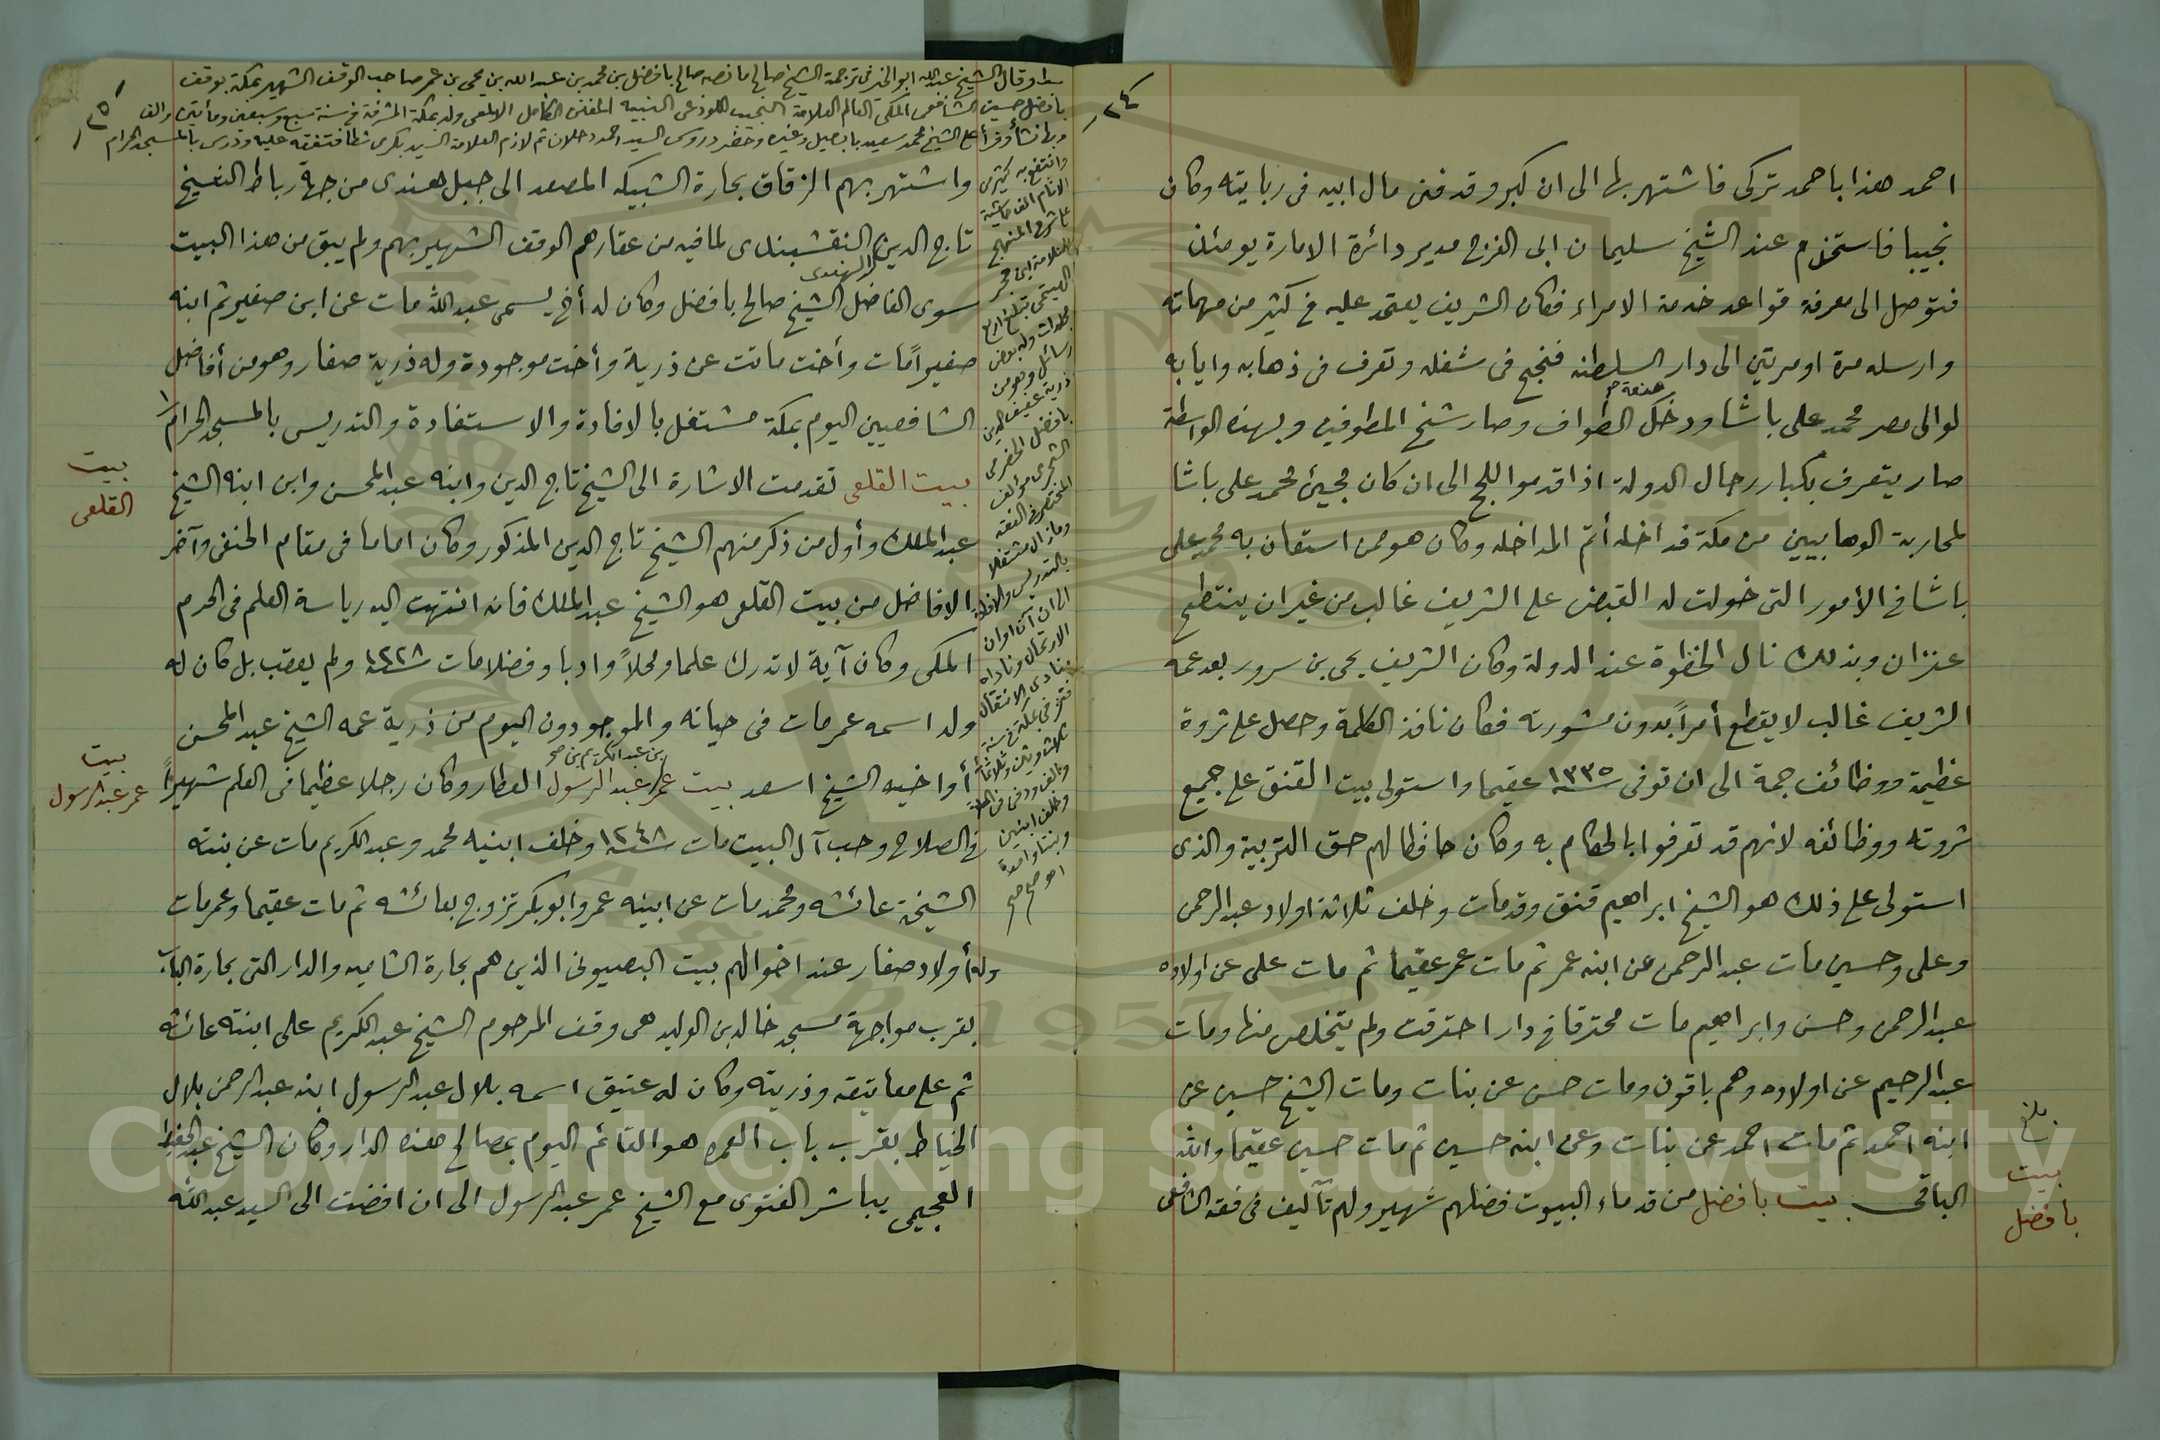 ٣٤
احمد هذا باحمد تركى فاشتهر بها الى ان كبر وقد فنى مال ابيه فى ربايته وكان
نجيبا فاستخدم عند الشيخ سليمان ابى الفرج مدير دائرة الامارة يومئذ
فتوصل الى معرفة قواعد خدمة الامراء فكان الشريف يعتمد عليه فى كثير من مهماته
وارسله مرة او مرتين الى دار السلطنه فنجح فى شغله وتعرف فى ذهابه وايابه
لوالى مصر محمد على باشا ودخل صنعة الطواف وصار شيخ المطوفين وبهذه الواسطة
صار يتعرف بكبار رجال الدولة اذا قدموا للحج الى ان كان مجيئ محمد على باشا
لمحاربة الوهابيين من مكة فداخله أتم المداخله وكان هو ممن استعان به محمد على
باشا فى الأمور التى خولت له القبض على الشريف غالب من غير ان ينتطح
عنزان وبذلك نال الحظوة عند الدولة وكان الشريف يحى بن سرور بعد عمه
الشريف غالب لا يقطع أمراً بدون مشورته فكان نافذ الكلمة وحصل على ثروة
عظيمة ووظائف جمة الى ان توفى سنة ١٢٣٥ عقيما واستولى بيت القنق على جميع
ثروته ووظائفه لانهم قد تعرفوا بالحكام به وكان حافظا لهم حق التربية والذى
استولى على ذلك هو الشيخ ابراهيم قنق وقد مات وخلف ثلاثة اولاد عبد الرحمن
وعلى وحسين مات عبد الرحمن عن ابنه عمر ثم مات عمر عقيما ثم مات على عن اولاده
عبد الرحمن وحسن وابراهيم مات محترقا فى دار احترقت ولم يتخلص منها ومات
عبد الرحيم عن اولاده وهم باقون ومات حسن عن بنات ومات الشيخ حسين عن
ابنه احمد ثم مات احمد عن بنات وعن ابنه حسين ثم مات حسين عقيما والله
الباقى. بيت بافضل من قدماء البيوت فضلهم شهير ولهم تآليف فى فقه الشافعى
بلغ
بيت
بافضل
٣٥
بط وقال الشيخ عبد الله ابو الخير فى ترجمة الشيخ صالح ما نصه صالح بافضل بن محمد بن عبد الله بن يحى بن عمر صاحب الوقف الشهير بمكة بوقف
بافضل حسين الشافعى المكى العالم العلامة النجيب اللوذعى النبيه المفنن الكامل الالمعى ولد بمكة المشرفة فى سنة سبع وسبعين ومأتين والف
وبها نشأ وقرأ على الشيخ محمد سعيد بابصيل وغيره وحضر دروس السيد احمد دحلان ثم لازم العلامة السيد بكرى شطا فتفقه عليه ودرس بالمسجد الحرام
وانتفع به كثير من
الانام الف حاشية
على شرح المنهج
للعلامة ابن حجر
الهيتمى تبلغ اربع
مجلدات وله بعض
رسائل وهو من
ذرية عفيف الدين
بافضل الحضرمى
الشحرى مؤلف
المختصر فى الفقه
وما زال مشتغلا
بالتدريس والافادة
الى ان آن اوان
الارتحال وناداه
منادى الانتقال
فتوفى بمكة فى سنة
ثلاث وثلاثمأة
والف ودفن فى المعلاة
وخلف ابنين
وبنتا واحدة
اهـ صح صح
واشتهر بهم الزقاق بحارة الشبيكه المصعد الى جبل هندى من جهة رباط الشيخ
تاج الدين النقشبندى الهندى لما فيه من عقارهم الوقف الشهير بهم ولم يبق من هذا البيت
سوى الفاضل الشيخ صالح بافضل وكان له أخ يسمى عبد الله مات عن ابن صغير ثم ابنه
صغيراً مات وأخت ماتت عن ذرية وأخت موجودة وله ذرية صغار وهو من أفاضل
الشافعيين اليوم بمكة مشتغل بالافادة والاستفادة والتدريس بالمسجد الحرام
بيت القلعى تقدمت الاشارة الى الشيخ تاج الدين وابنه عبد المحسن وابن ابنه الشيخ
عبد الملك وأول من ذكر منهم الشيخ تاج الدين المذكور وكان اماما فى مقام الحنفى وآخر
الافاضل من بيت القلعى هو الشيخ عبد الملك فانه انتهت اليه رياسة العلم فى الحرم
المكى وكان آية لا تدرك علما ومحلاً وادبا وفضلا مات سنة ١٢٢٨ ولم يعقب بل كان له
ولد اسمه عمر مات فى حياته والموجودون اليوم من ذرية عمه الشيخ عبد المحسن
أو اخيه الشيخ اسعد بيت عمر عبد الرسول بن عبد الكريم صح العطار وكان رجلا عظيما فى العلم شهيراً
فى الصلاح وحب آل البيت مات سنة ١٢٤٨ وخلف ابنيه محمد وعبد الكريم مات عن بنته
الشيخة عائشه ومحمد مات عن ابنيه عمر وابو بكر تزوج بعائشه ثم مات عقيما وعمر مات
وله أولاد صغار عند اخوالهم بيت البصيونى الذين هم بحارة الشاميه والدار التى بحارة الباب
بقرب مواجهة مسجد خالد بن الوليد هى وقف المرحوم الشيخ عبد الكريم على ابنته عائشه
ثم على معاتيقه وذريته وكان له عتيق اسمه بلال عبد الرسول ابنه عبد الرحمن بلال
الخياط بقرب باب العمره هو القائم اليوم بمصالح هذه الدار وكان الشيخ عبد الحفيظ
العجيمى يباشر الفتوى مع الشيخ عمر عبد الرسول الى ان افضت الى السيد عبد الله
بيت
القلعى
بيت
عمر عبد الرسول
Copyright © King Saud University
1957